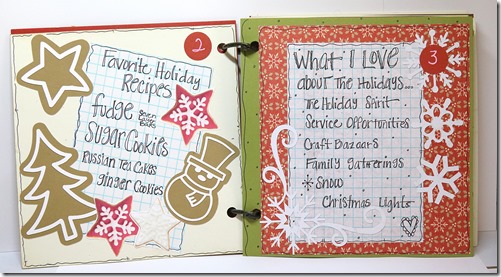 2
Favorite Holiday
Recipes
fudge
Sugar Cookies
Russian Tea Cakes
Ginger Cookies
3
What I Love
about The Holidays....
The Holiday Spirit
Service Opportunities
Craft Bazaars
Family Gatherings
* Snow
Christmas Lights